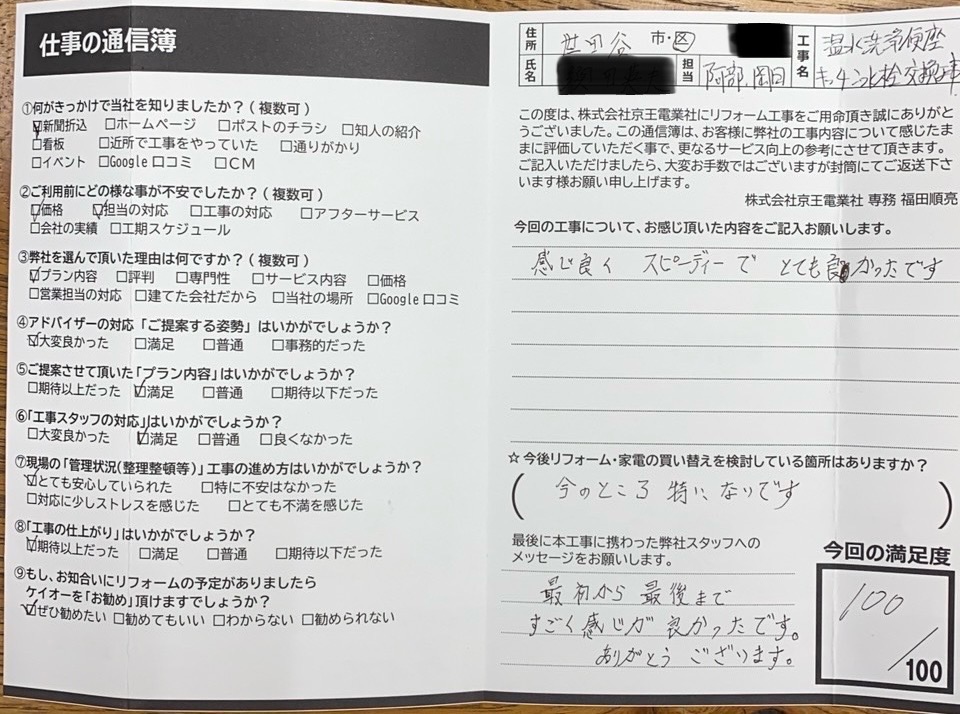 仕事の通信簿
①何がきっかけで当社を知りましたか?(複数可)
☑新聞折込 □ホームページ □ポストのチラシ □知人の紹介
□看板 □近所で工事をやっていた □通りがかり
□イベント □Google口コミ □CM
②ご利用前にどの様な事が不安でしたか?(複数可)
☑価格 ☑担当の対応 □工事の対応 □アフターサービス
□会社の実績 □工期スケジュール
③弊社を選んで頂いた理由は何ですか?(複数可)
☑プラン内容 □評判 □専門性 □サービス内容 □価格
□営業担当の対応 □建てた会社だから □当社の場所 □Google口コミ
④アドバイザーの対応「ご提案する姿勢」はいかがでしょうか?
☑大変良かった □満足 □普通 □事務的だった
⑤ご提案させて頂いた「プラン内容」はいかがでしょうか?
□期待以上だった ☑満足 □普通 □期待以下だった
⑥「工事スタッフの対応」はいかがでしょうか?
□大変良かった ☑満足 □普通 □良くなかった
⑦現場の「管理状況(整理整頓等)」工事の進め方はいかがでしょうか?
☑とても安心していられた □特に不安はなかった
□対応に少しストレスを感じた □とても不満を感じた
⑧「工事の仕上がり」はいかがでしょうか?
☑期待以上だった □満足 □普通 □期待以下だった
⑨もし、お知合いにリフォームの予定がありましたら
ケイオーを「お勧め」頂けますでしょうか?
☑ぜひ勧めたい □勧めてもいい □わからない □勧められない
住所 世田谷 市・区
氏名 担当 阿部、岡田
工事名 温水洗浄便座
キッチン水栓交換工事
この度は、株式会社京王電業社にリフォーム工事をご用命頂き誠にありがと
うございました。この通信簿は、お客様に弊社の工事内容について感じたま
まに評価していただく事で、更なるサービス向上の参考にさせて頂きます。
ご記入いただけましたら、大変お手数ではございますが封筒にてご返送下さ
います様お願い申し上げます。
株式会社京王電業社 専務 福田順亮
今回の工事について、お感じ頂いた内容をご記入お願いします。
感じ良く スピーディーで とても良かったです
☆今後リフォーム・家電の買い替えを検討している箇所はありますか?
(今のところ 特に ないです)
最後に本工事に携わった弊社スタッフへの
メッセージをお願いします。
最初から 最後まで
すごく感じが 良かったです。
ありがとう ございます。
今回の満足度
100/100